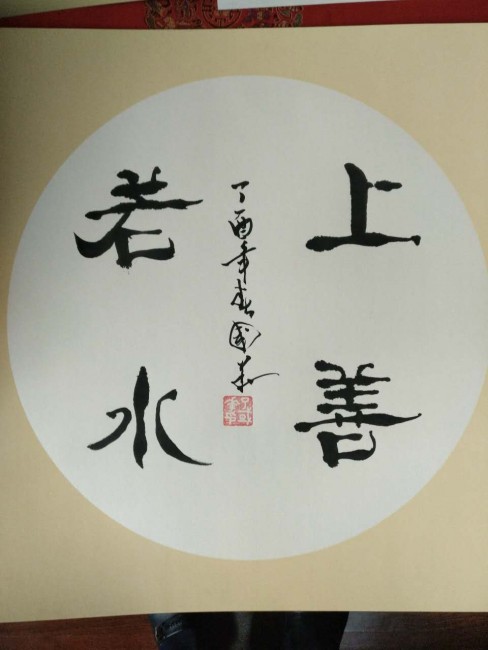 上善
若水
丁酉年春国